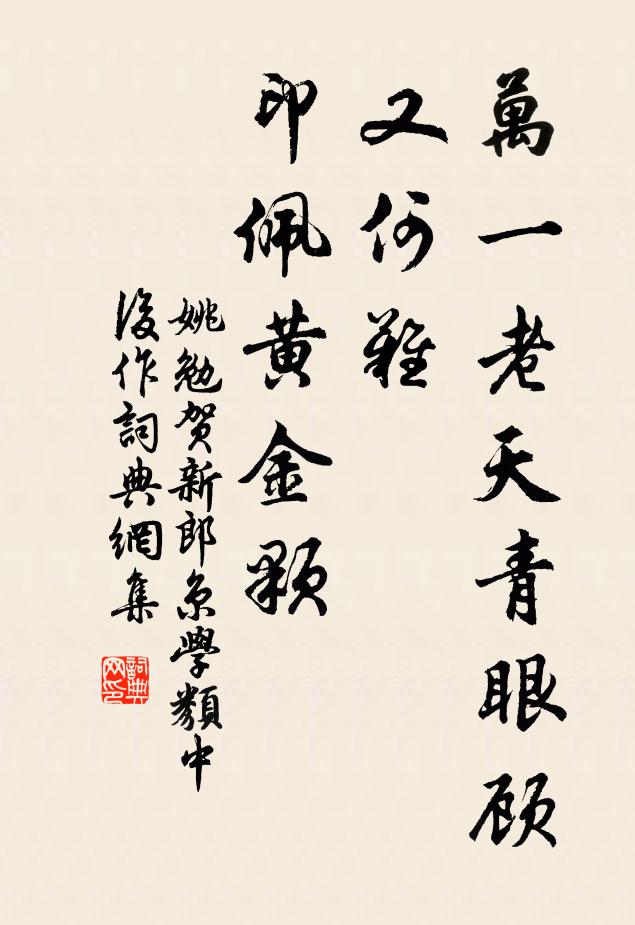 萬一老天青眼顾
又何難
印佩黄金顆
姚勉賀新郎京學類中
後作詞典網集
詞典
网印